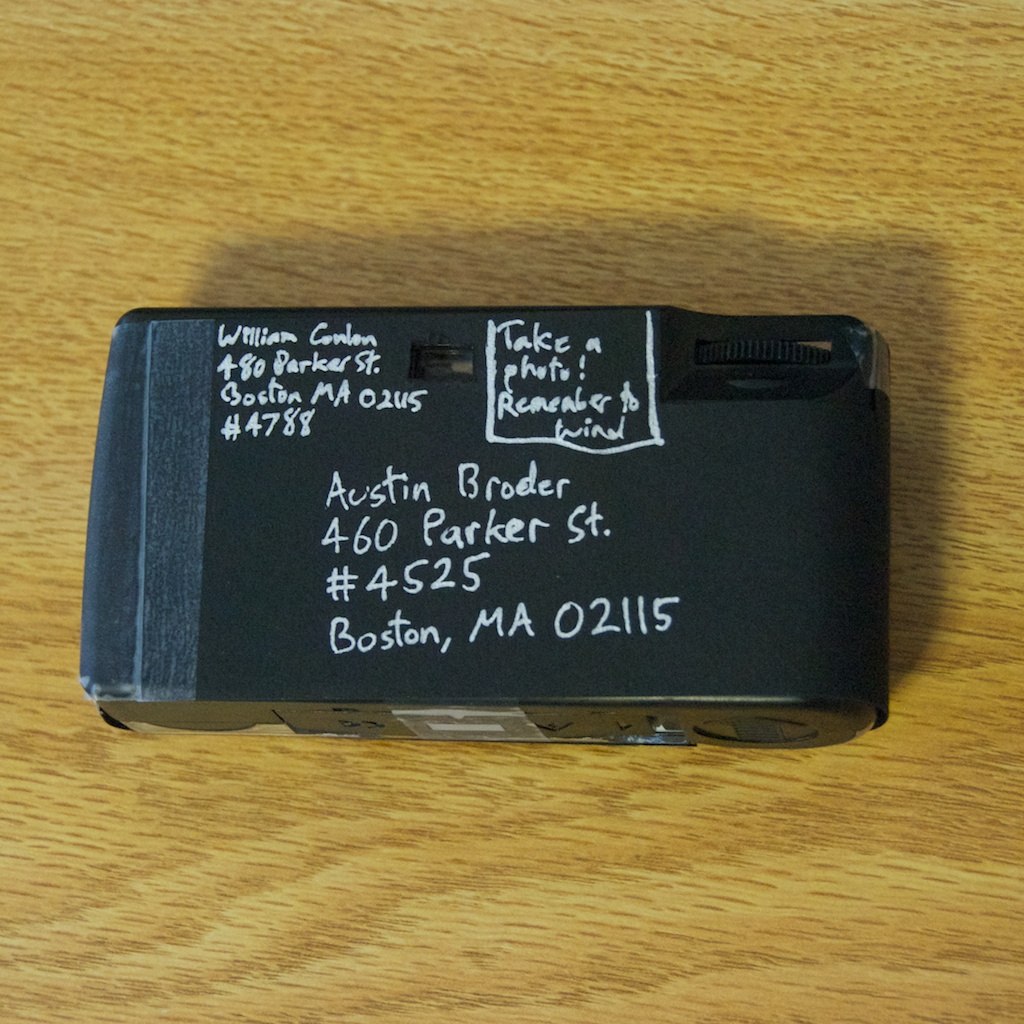 William Conlon
480 Parker St.
Boston MA 02115
#4788
Take a
photo!
Remember to
wind
Austin Broder
460 Parker St.
#4525
Boston, MA 02115